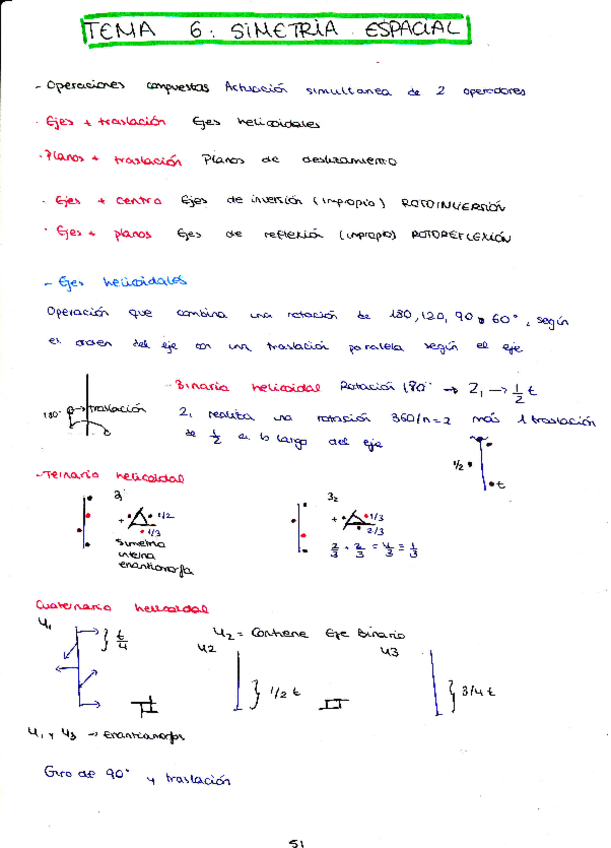 TEMA 6: SIMETRIA ESPACIAL
- Operaciones compuestas Actuación simultanea de 2 operadores
· Ejes + traslación Ejes helicoidales
· Planos + traslación Planos de deslizamiento
· Ejes + centro Ejes de inversión (impropio) ROTOINVERSIÓN
· Ejes + planos Ejes de reflexión (impropio) ROTOREFLEXIÓN
- Ejes helicoidales
Operación que combina una rotación de 180, 120, 90 o 60°, según
el orden del eje con una traslación paralela según el eje
- Binaria helicoidal Rotación 180° → 2₁ → 1/2 t
180° → traslación
2₁ realiza una rotación 360/n=2 más 1 traslación
de 1/2 a lo largo del eje
1/2
t
- Ternario helicoidal
3₁ + 1/2
1/3
simetria
interna
enantiomorfa
3₂ + 1/3
2/3
2/3 + 2/3 = 4/3 = 1/3
Cuaternario helicoidal
4₁ } t/4
4₂ = Contiene Eje Binario
42 } 1/2 t
43 } 3/4 t
4₁ y 4₃ → Enantiomorfos
Giro de 90° y traslación
51